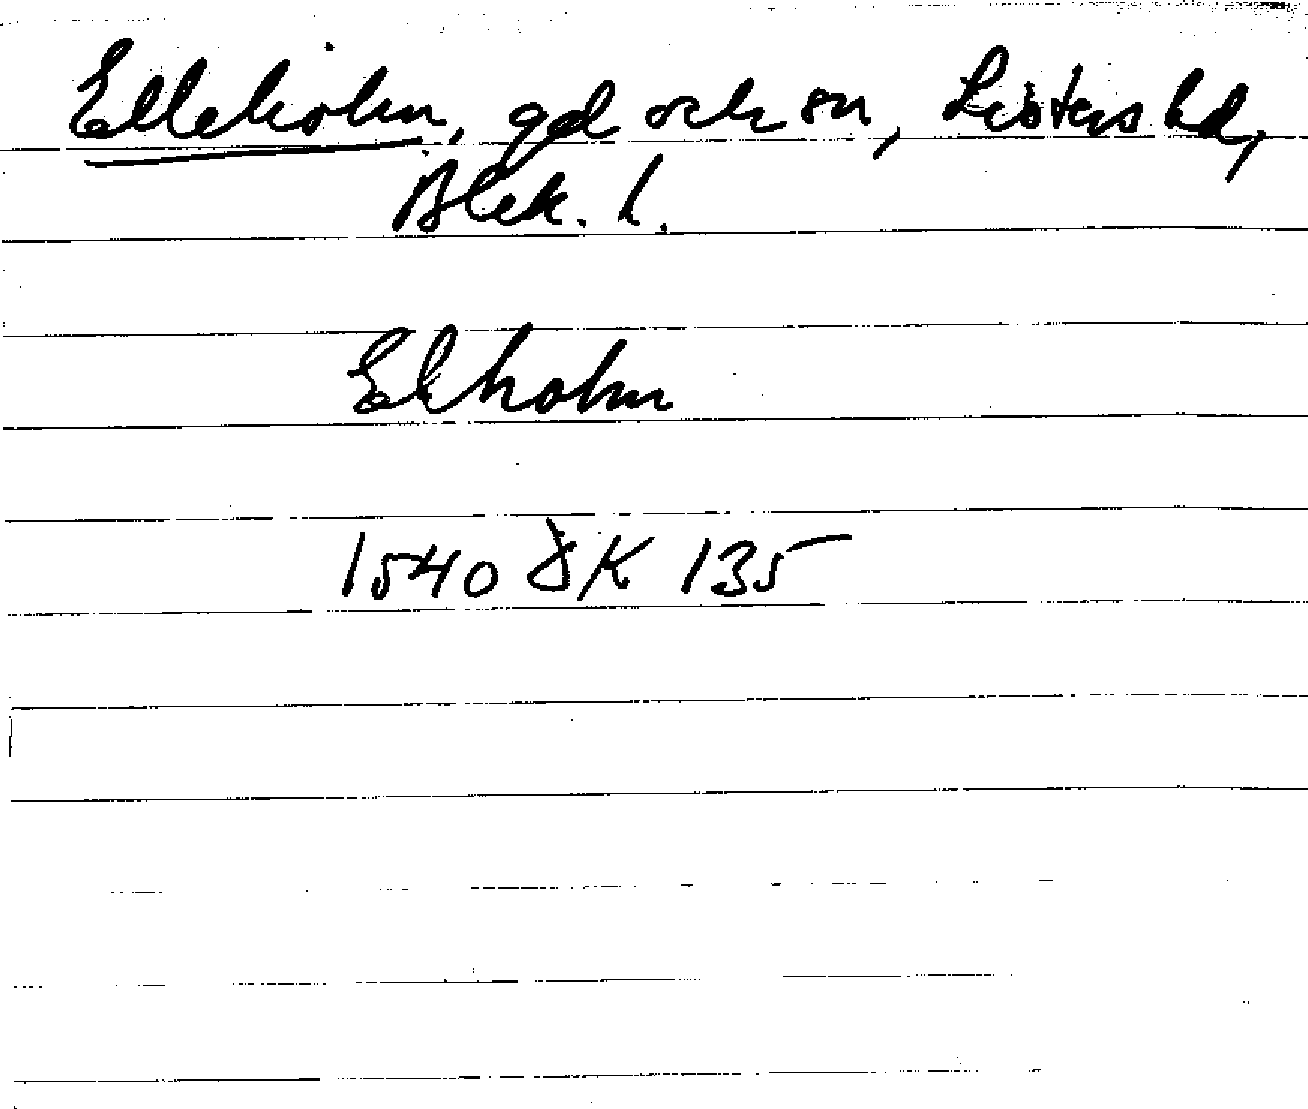 Elleholm, gd och sn, Listers hd,
Blek. l.
Elholm
1540 DK 135